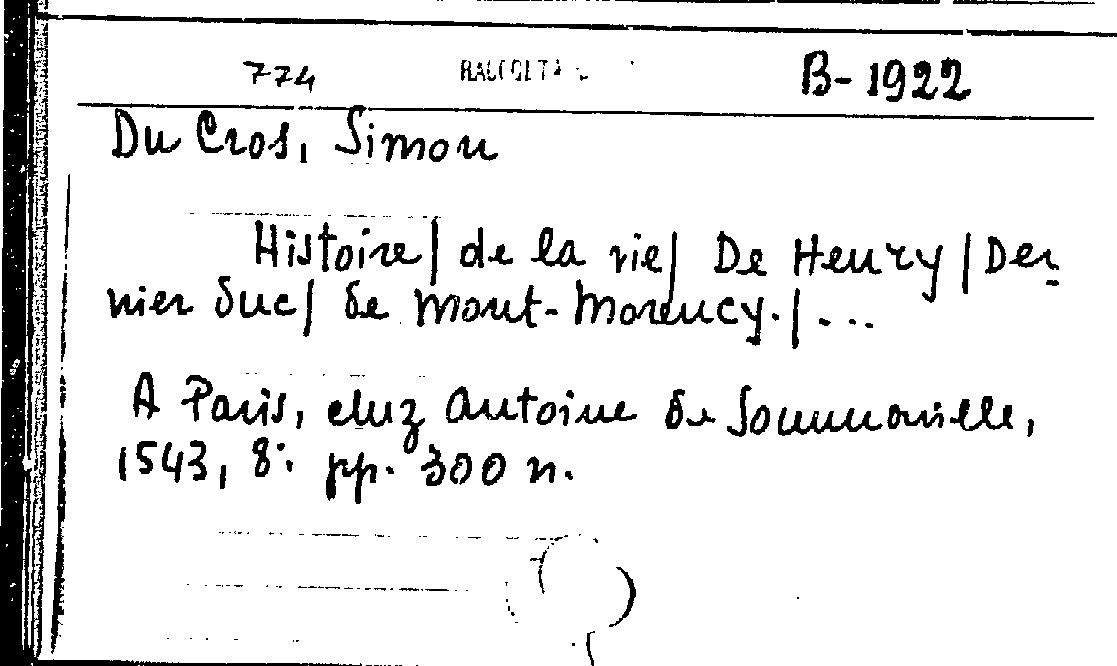 774 RACCOLTA B-1922
Du Cros, Simon
Histoire/ de la vie/ De Henry / Der-
nier Duc/ de Mont-Morency./...
A Paris, chez Antoine de Sommaville,
1543, 8°. pp. 300 n.